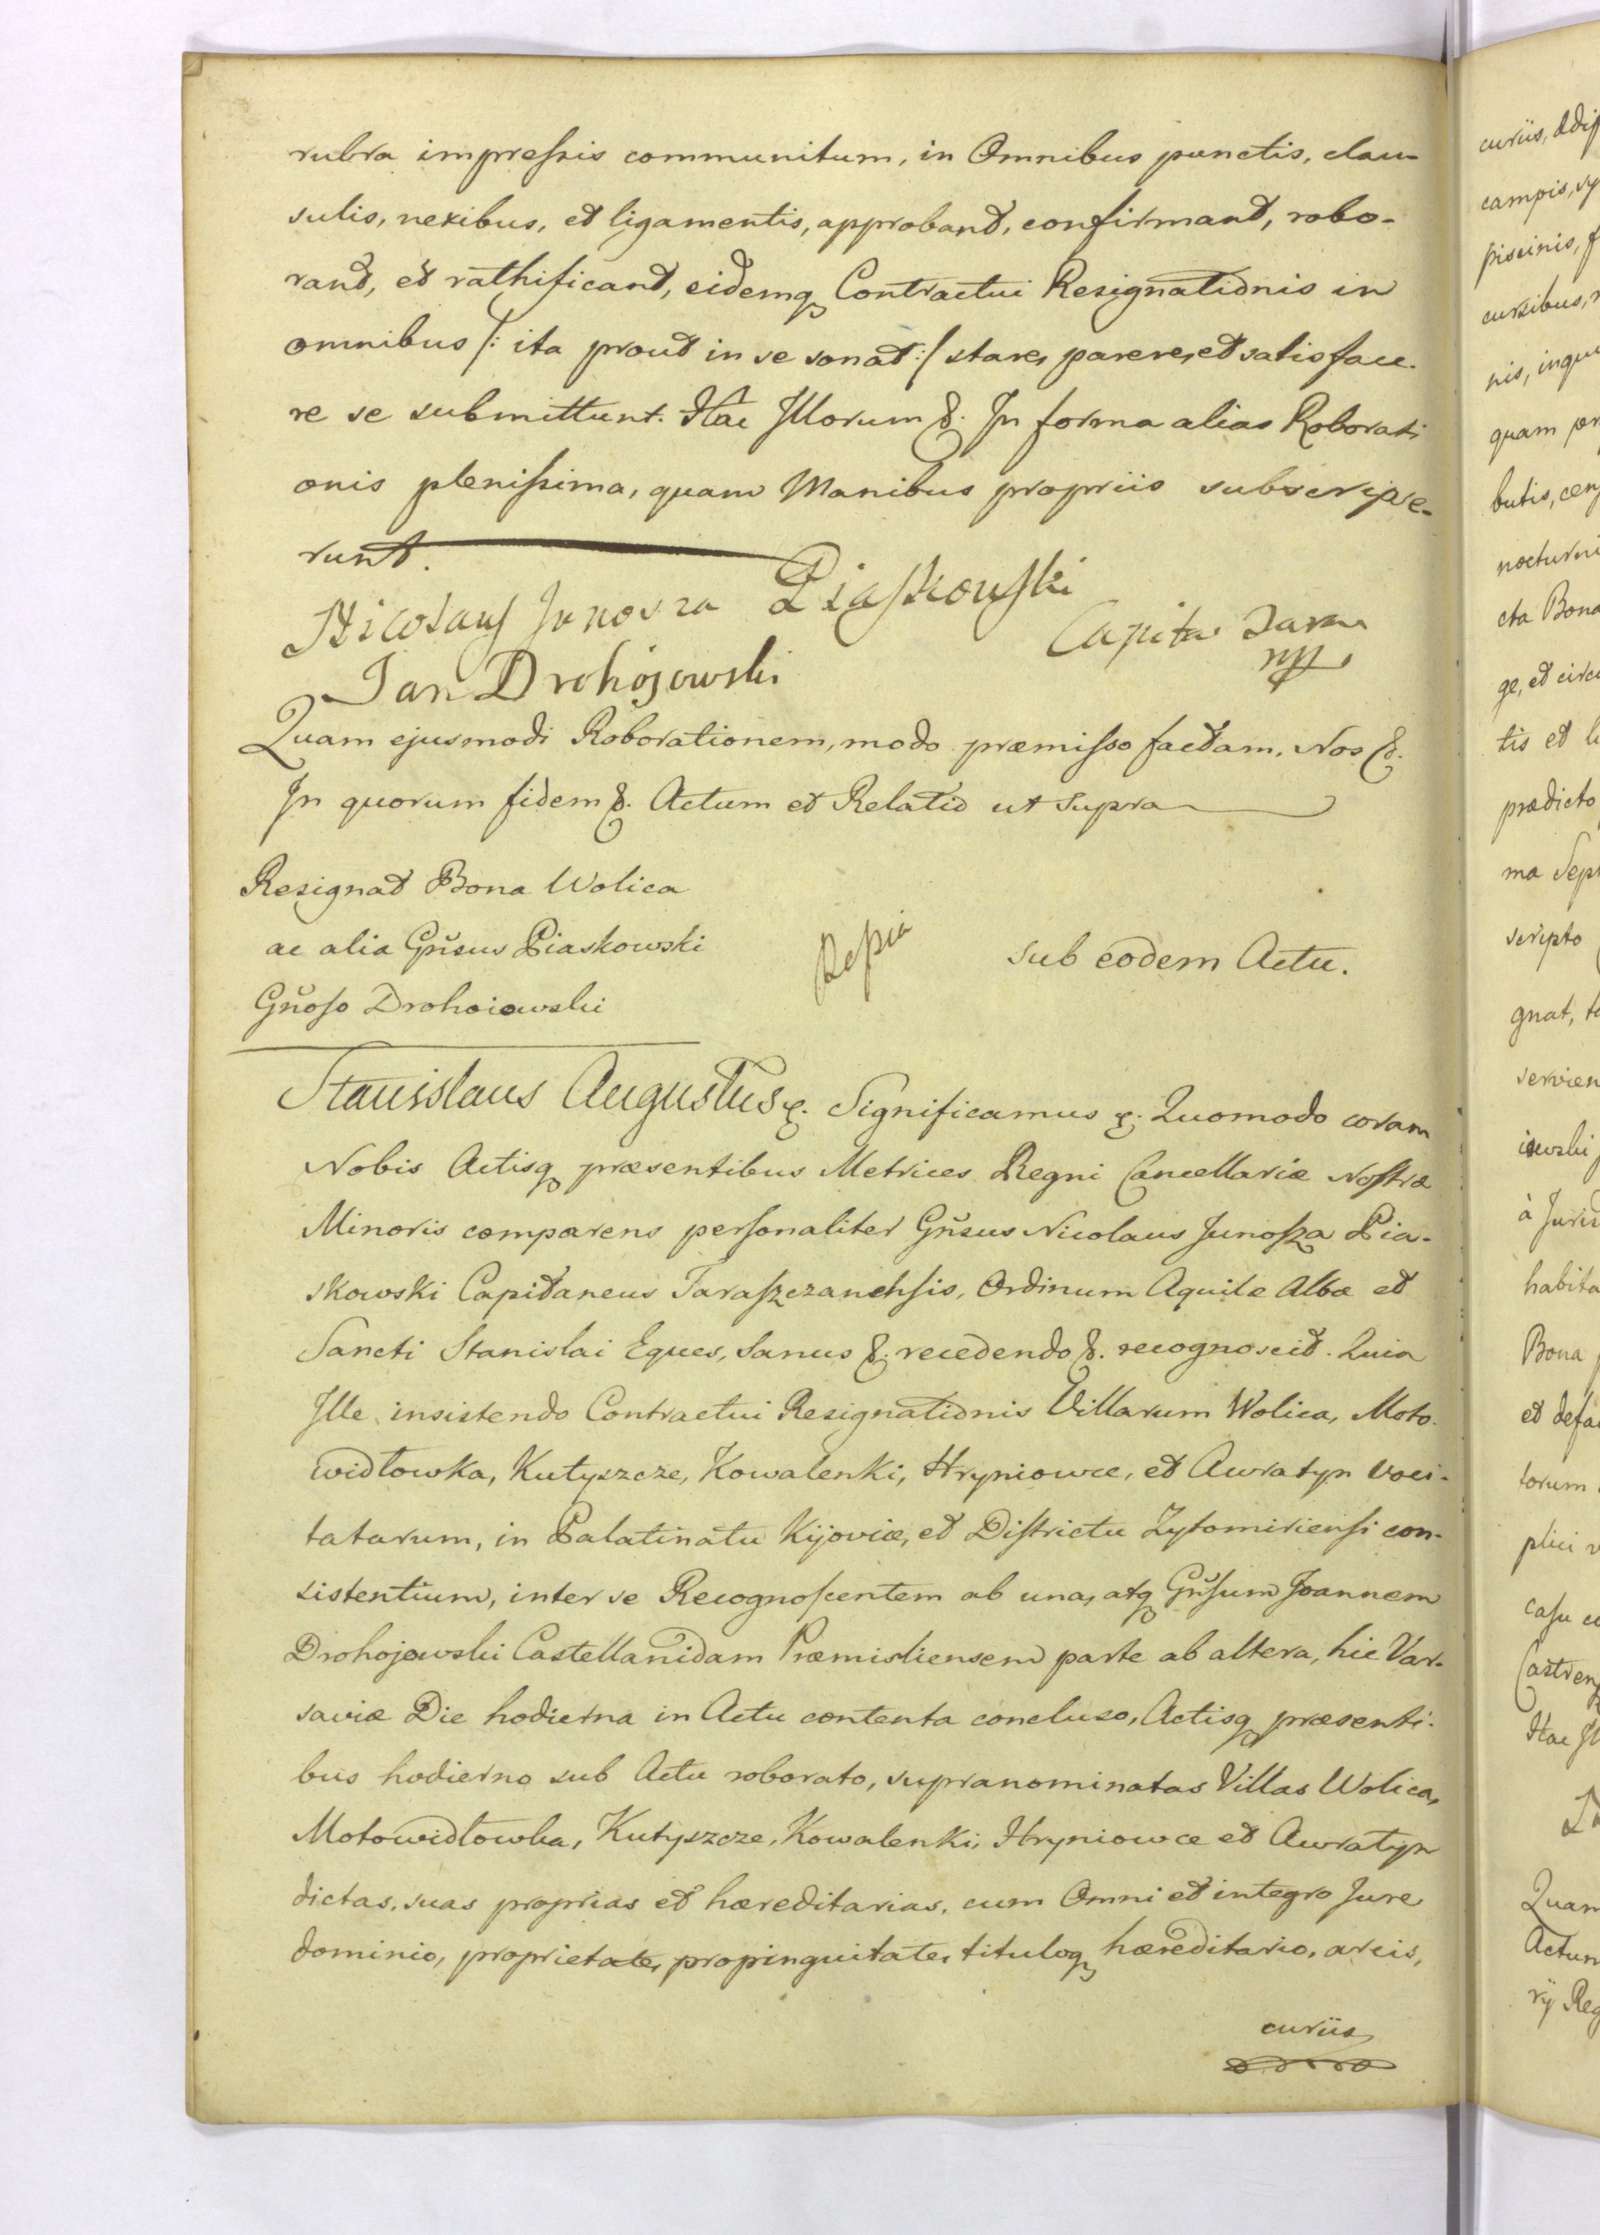 rubra impressis communitum, in Omnibus punctis, clau-
sulis, nexibus, et ligamentis, approbant, confirmant, robo-
rant, et rathificant, eidemq Contractui Resignationis in
omnibus /: ita prout in se sonat :/ stare, parere, et satisface-
re se submittunt. Hac Illorum &. In forma alias Roborati
onis plenissima, quam Manibus propriis subscripse-
runt.
Nicolaus Junosza Piaskowski
Capita: Tara
mp
Jan Drohojowski
Quam ejusmodi Roborationem, modo præmisso factam, Nos &.
In quorum fidem &. Actum et Relatio ut Supra
Resignat Bona Wolica
ac alia Gnsus Piaskowski
Gnoso Drohoiowski
sub eodem Actu.
Stanislaus Augustus &. Significamus &. Quomodo coram
Nobis Actisq præsentibus Metrices Regni Cancellariæ Nostræ
Minoris comparens personaliter Gnsus Nicolaus Junosza Pia-
skowski Capitaneus Taraszczanensis, Ordinum Aquilæ Albæ et
Sancti Stanislai Eques, Sanus &. recedendo &. recognoscit. Quia
Ille insistendo Contractui Resignationis Villarum Wolica, Moto-
widłowka, Kutyszcze, Kowalenki, Hryniowce, et Awratyn voci-
tatarum, in Palatinatu Kijoviæ, et Districtu Zytomiriensi con-
sistentium, inter se Recognoscentem ab una, atq Gnsum Joannem
Drohojowski Castellanidam Præmisliensem parte ab altera, hic Var-
saviæ Die hodierna in Actu contenta concluso, Actisq præsenti-
bus hodierno sub Actu roborato, supranominatas Villas Wolica,
Motowidłowka, Kutyszcze, Kowalenki, Hryniowce et Awratyn
dictas, suas proprias et hæreditarias, cum Omni et integro Jure
dominio, proprietate, propinquitate, tituloq hæreditario, arcis,
curiis
curiis,
campis,
piscinis,
nis,
quam
butis,
cta Bona
ge, et
tis et
prædicto
ma
scripto
gnat,
servien
à Juris
habita
Bona
et
torum
plici
casu
Castren
Hac
Quam
Actum
rij Reg